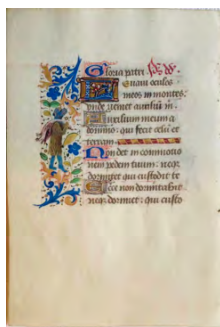 Gloria patri. p̄s. dd̄.
Leuaui oculos
meos in montes:
vnde veniet auxiliū m̄.
Auxilium meum a
domino: qui fecit celū et
terram
Non det in commotio
nem pedem tuum: neqꝫ
dormitet qui custodit te
Ecce non dormitabit
neqꝫ dormiet: qui custo